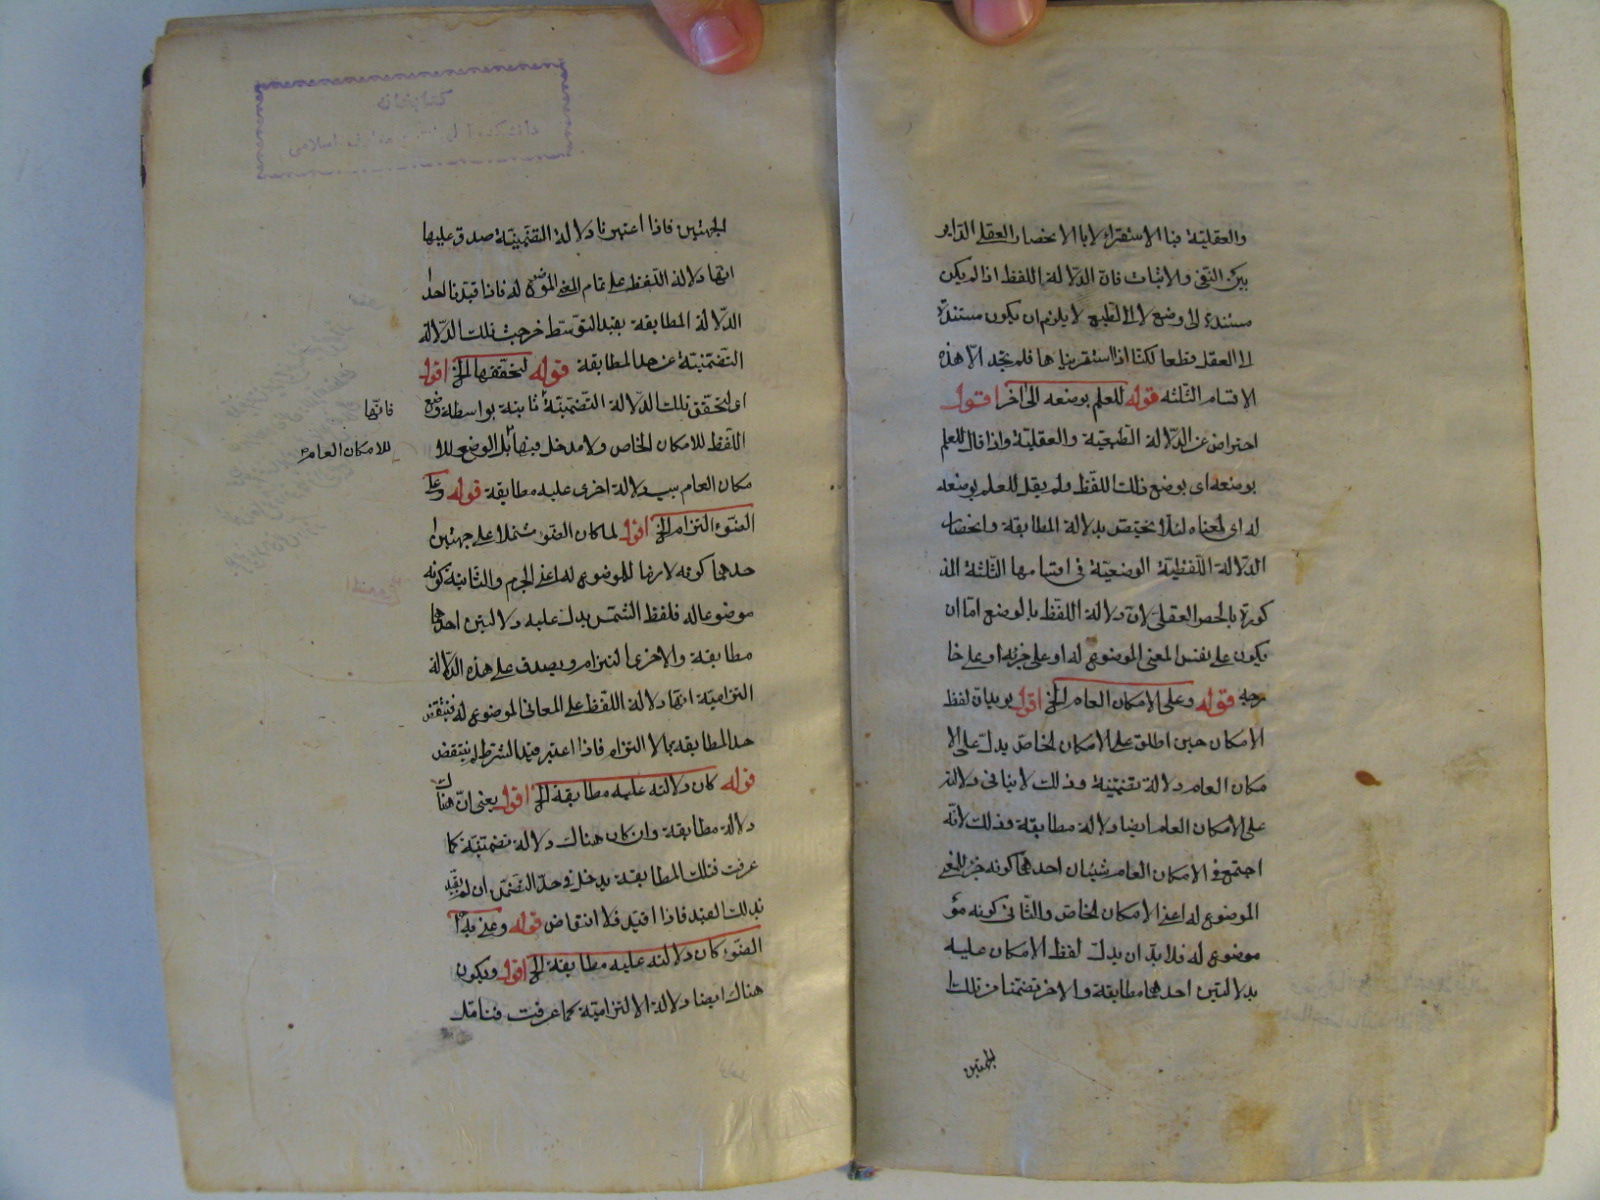 والعقلية فبالاستقراء لا بالانحصار العقلي الداير
بين النفي والاثبات فان الدلالة اللفظ اذا لم يكن
مستندة الى وضع لا الى الطبع لا يلزم ان يكون مستندة
الى العقل قطعا لكنا اذا استقرينا ها فلم نجد الا هذه
الاقسام الثلثه قوله للعلم بوضعه الى اخر اقول
احتراض عن الدلالة الطبعية والعقلية واذا قال للعلم
بوضعه اى بوضع ذلك اللفظ ولم يقل للعلم بوضعه
له اى لمعناه لئلا يختص بدلالة المطابقة وانحصار
الدلالة اللفظية الوضعية فى اقسامها الثلثة المذ
كورة بالحصر العقلى لان دلالة اللفظ بالوضع اما ان
يكون على نفس المعنى الموضوع له او على جزئه او على خا
رجه قوله وعلى الامكان العام الخ اقول لفظ
الامكان حين اطلق على الامكان الخاص يدل على الا
مكان العام دلالة تضمنية وذلك لا ينافى دلالة
على الامكان العام ايضا دلالة مطابقة وذلك لانه
اجتمع فى الامكان العام شيئان احدهما كونه جزء للمعنى
الموضوع له اعنى الامكان الخاص والثانى كونه مو
موضوع له فلا بد ان يدل لفظ الامكان عليه
بدلالتين احدهما مطابقة والاخر تضمنا من تلك
الجهتين
الجهتين فاذا اعتبرنا دلالة التضمنية صدق عليها
انها دلالة اللفظ على تمام المعنى الموضوع له فاذا قيدنا لحد
الدلالة المطابقة بقيد التوسط خرجت تلك الدلالة
التضمنية عن حد المطابقة قوله لتحققها الخ اقول
اى لتحقق تلك الدلالة التضمنية ثابتة بواسطة وضع
اللفظ للامكان الخاص ولا مدخل فيها بل الوضع للا
فانها
للامكان العام
مكان العام سبب دلالة اخرى عليه مطابقة قوله وعلى
الضوء التزام الخ اقول لما كان الضوء مشتملا على جهتين
حدهما كونه لازما للموضوع له اعنى الجرم والثانية كونه
موضوعا له فلفظ الشمس يدل عليه دلالتين احدهما
مطابقة والاخرى التزام ويصدق على هذه الدلالة
التزامية انها دلالة اللفظ على المعانى الموضوع له فينتقض
حد المطابقة بها لا التزام فاذا اعتبر قيد الشرط لم ينتقض
قوله كان دلالته عليه مطابقة الخ اقول يعنى ان هناك
دلالة مطابقة وان كان هناك دلالة تضمنية كما
عرفت فتلك المطابقة يدخل فى حد التضمن ان لم يقيد
بذلك القيد فاذا اقيد فلا انتقاض قوله وعنى به
الضوء كان دلالته عليه مطابقة الخ اقول ويكون
هناك ايضا دلالة الالتزامية كما عرفت فتامل